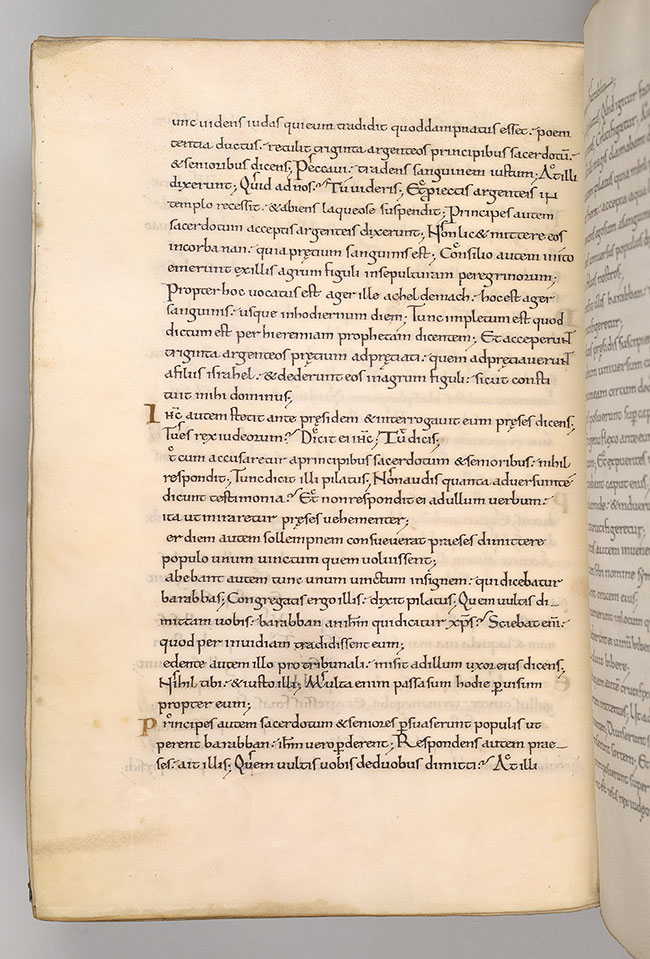 unc uidens iudas qui eum tradidit quod dampnatus esset· poeni
tentia ductus· retulit triginta argenteos principibus sacerdotū·
& senioribus dicens; Peccaui· tradens sanguinem iustum; At illi
dixerunt; Quid ad nos? Tu uideris; Et proiectis argenteis in
templo recessit· & abiens laqueo se suspendit; Principes autem
sacerdotum acceptis argenteis dixerunt; Non lic& mittere eos
in corbanan· quia prętium sanguinis est; Consilio autem inito
emerunt ex illis agrum figuli in sepulturam peregrinorum;
Propter hoc uocatus est ager ille acheldemach· hoc est ager
sanguinis· usque in hodiernum diem; Tunc impletum est quod
dictum est per hieremiam prophetam dicentem; Et acceperunt
triginta argenteos prętium adprętiati· quem adprętiauerunt
a filiis israhel· & dederunt eos in agrum figuli· sicut consti
tuit mihi dominus;
Ihc autem stetit ante pręsidem & interrogauit eum pręses dicens;
Tu es rex iudeorum? Dicit ei ihc; Tu dicis;
t cum accusaretur a principibus sacerdotum & senioribus· nihil
respondit; Tunc dicit illi pilatus; Non audis quanta aduersum te
dicunt testimonia? Et non respondit ei ad ullum uerbum·
ita ut miraretur pręses uehementer;
er diem autem sollempnem consueuerat praeses dimittere
populo unum uinctum quem uoluissent;
abebant autem tunc unum uinctum insignem· qui dicebatur
barabbas; Congregatis ergo illis· dixit pilatus; Quem uultis di-
mittam uobis· barabban an ihm qui dicitur xps? Sciebat eni·
quod per inuidiam tradidissent eum;
edente autem illo pro tribunali· misit ad illum uxor eius dicens;
Nihil tibi· & iusto illi; Multa enim passa sum hodie p uisum
propter eum;
Principes autem sacerdotum & seniores psuaserunt populis ut
peterent barabban· ihm uero pderent; Respondens autem prae-
ses· ait illis; Quem uultis uobis de duobus dimitti? At illi